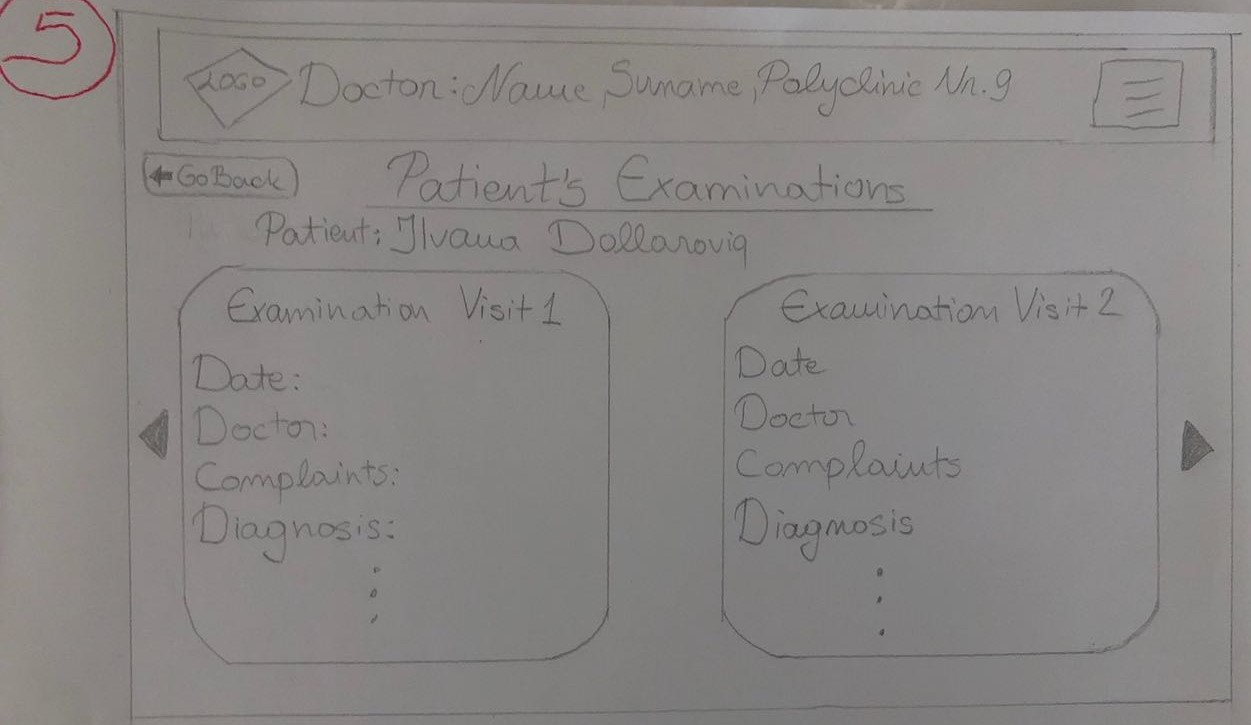 5
LOGO Doctor: Name, Surname, Polyclinic Nr. 9
GoBack
Patient's Examinations
Patient: Ilvana Dollaroviq
Examination Visit 1
Date:
Doctor:
Complaints:
Diagnosis:
Examination Visit 2
Date
Doctor
Complaints
Diagnosis